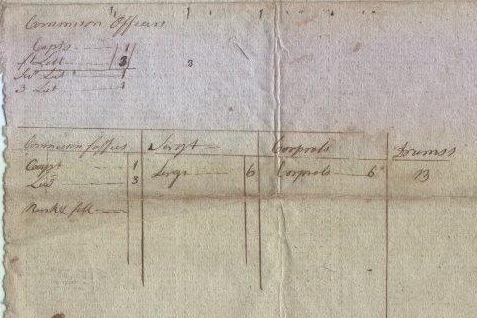 Commision Officers
Capts 1
1st Lut 3 3
Lut 1
3 Lut 1
Commision offices Sergt Corprels Drumss
Capt 1 Sergs 6 Corprels 6 13
Lut 3
Rank & fill